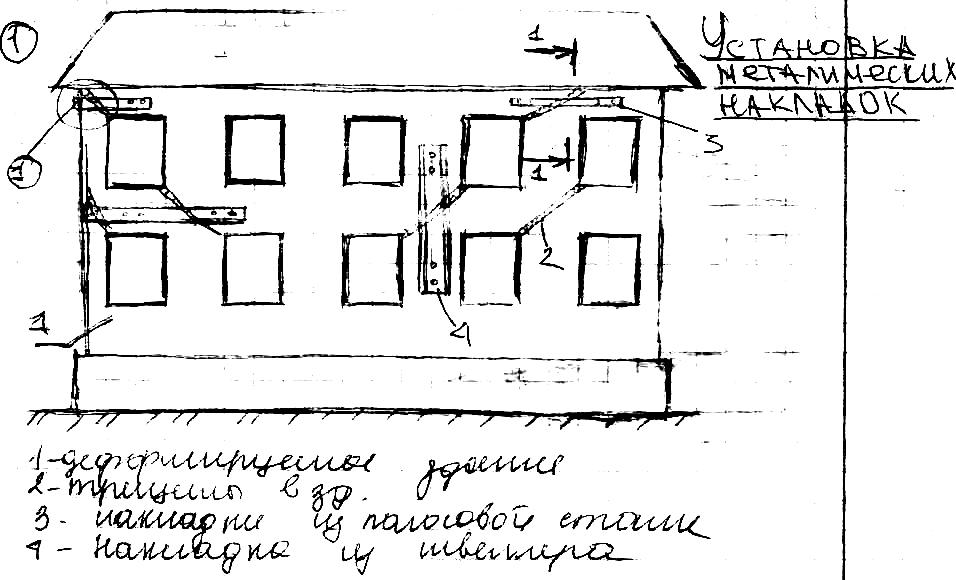 1
Установка
металических
накладок
1
1
3
1
1
2
1
4
1-деформируемое здание
2-трещины в зд.
3- накладки из полосовой стали
4- накладка из швеллера